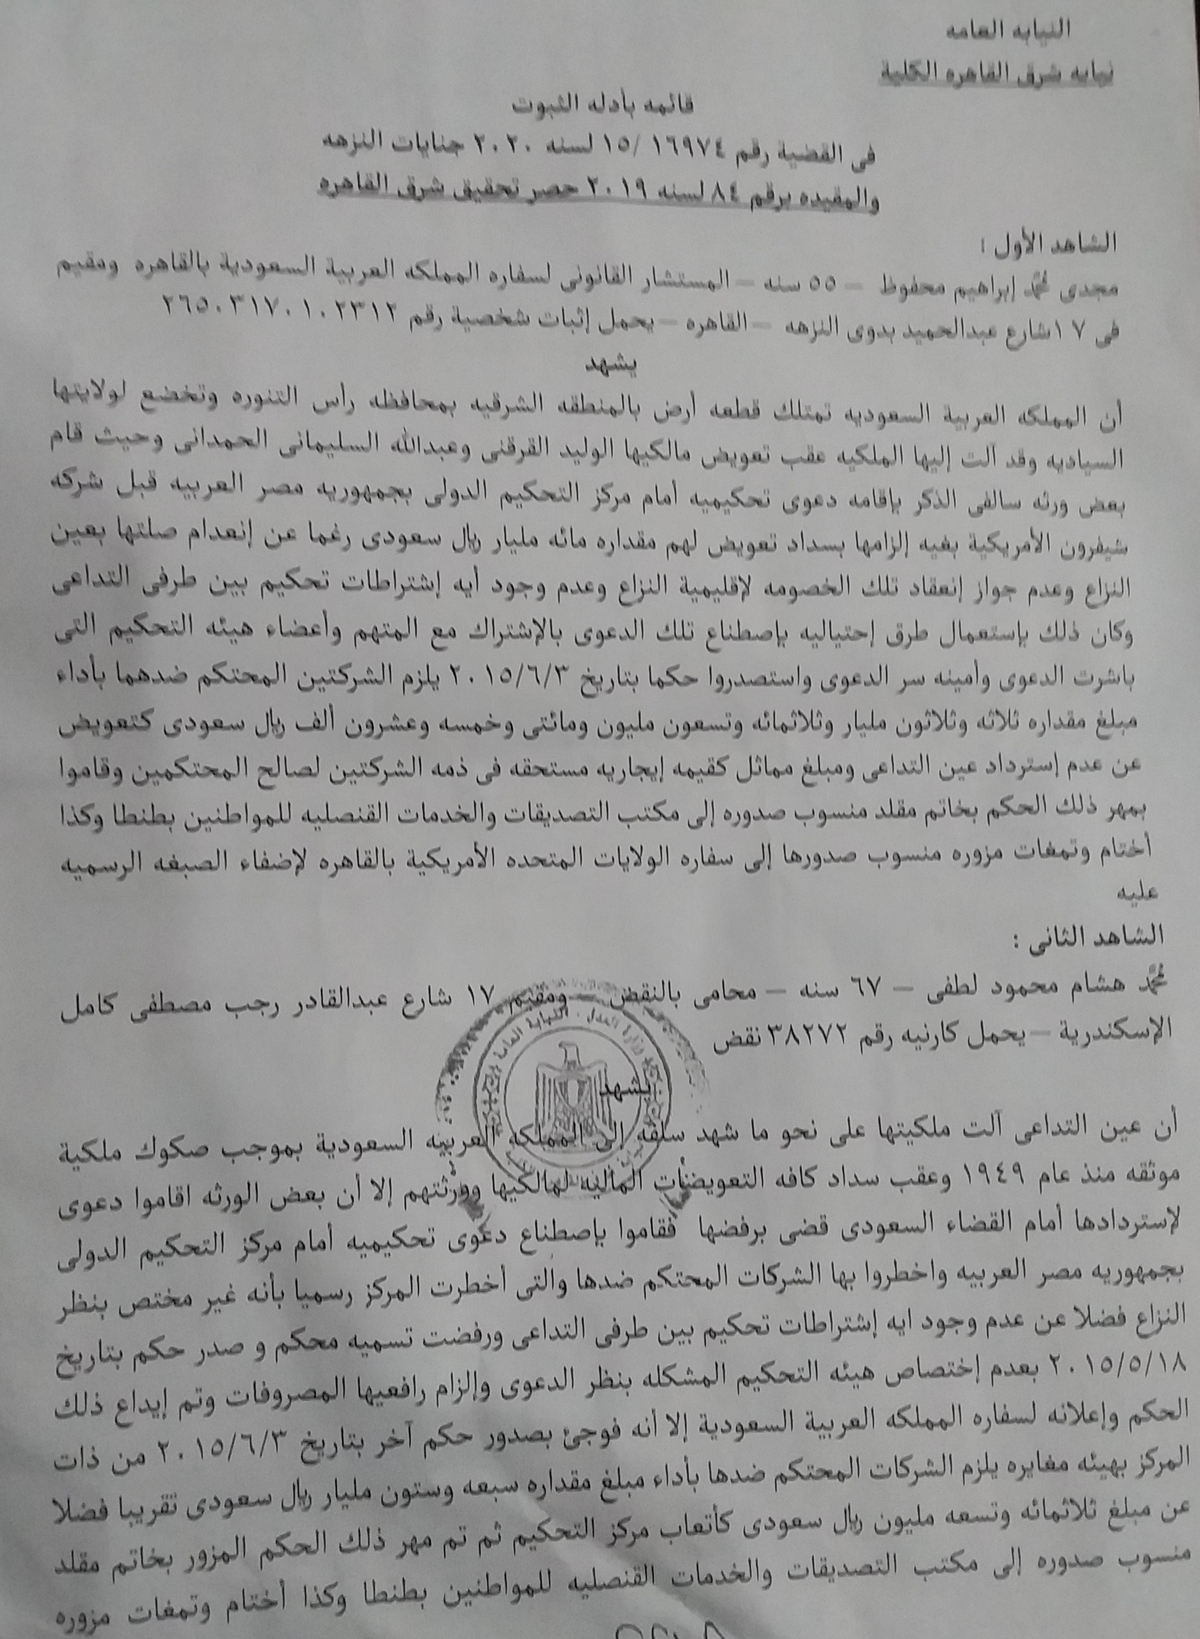 النيابه العامه
نيابه شرق القاهره الكلية
قائمه بأدله الثبوت
فى القضية رقم ١٦٩٧٤ /١٥ لسنه ٢٠٢٠ جنايات النزهه
والمقيده برقم ٨٤ لسنه ٢٠١٩ حصر تحقيق شرق القاهره
الشاهد الأول :
مجدى محمد إبراهيم محفوظ – ٥٥ سنه – المستشار القانونى لسفاره المملكه العربية السعودية بالقاهره ومقيم
فى ١٧ شارع عبدالحميد بدوى النزهه – القاهره – يحمل إثبات شخصية رقم ٢٦٥٠٣١٧٠١٠٢٣١٢
يشهد
أن المملكه العربية السعوديه تمتلك قطعه أرض بالمنطقه الشرقيه بمحافظه رأس التنوره وتخضع لولايتها
السياديه وقد آلت إليها الملكيه عقب تعويض مالكيها الوليد القرقنى وعبدالله السليمانى الحمدانى وحيث قام
بعض ورثه سالفى الذكر بإقامه دعوى تحكيميه أمام مركز التحكيم الدولى بجمهوريه مصر العربيه قبل شركه
شيفرون الأمريكية بغيه إلزامها بسداد تعويض لهم مقداره مائه مليار ريال سعودى رغما عن إنعدام صلتها بعين
النزاع وعدم جواز إنعقاد تلك الخصومه لإقليمية النزاع وعدم وجود أيه إشتراطات تحكيم بين طرفى التداعى
وكان ذلك بإستعمال طرق إحتياليه بإصطناع تلك الدعوى بالإشتراك مع المتهم وأعضاء هيئه التحكيم التى
باشرت الدعوى وأمينه سر الدعوى واستصدروا حكما بتاريخ ٢٠١٥/٦/٣ يلزم الشركتين المحتكم ضدهما بأداء
مبلغ مقداره ثلاثه وثلاثون مليار وثلاثمائه وتسعون مليون ومائتى وخمسه وعشرون ألف ريال سعودى كتعويض
عن عدم إسترداد عين التداعى ومبلغ مماثل كقيمه إيجاريه مستحقه فى ذمه الشركتين لصالح المحتكمين وقاموا
بمهر ذلك الحكم بخاتم مقلد منسوب صدوره إلى مكتب التصديقات والخدمات القنصليه للمواطنين بطنطا وكذا
أختام وتمغات مزوره منسوب صدورها إلى سفاره الولايات المتحده الأمريكية بالقاهره لإضفاء الصبغه الرسميه
عليه
الشاهد الثانى :
محمد هشام محمود لطفى – ٦٧ سنه – محامى بالنقض – ومقيم ١٧ شارع عبدالقادر رجب مصطفى كامل
الإسكندرية – يحمل كارنيه رقم ٣٨٢٧٢ نقض
يشهد
أن عين التداعى آلت ملكيتها على نحو ما شهد سلفه إلى المملكه العربيه السعودية بموجب صكوك ملكية
موثقه منذ عام ١٩٤٩ وعقب سداد كافه التعويضات الماليه لمالكيها وورثتهم إلا أن بعض الورثه اقاموا دعوى
لإستردادها أمام القضاء السعودى قضى برفضها فقاموا بإصطناع دعوى تحكيميه أمام مركز التحكيم الدولى
بجمهوريه مصر العربيه واخطروا بها الشركات المحتكم ضدها والتى أخطرت المركز رسميا بأنه غير مختص بنظر
النزاع فضلا عن عدم وجود ايه إشتراطات تحكيم بين طرفى التداعى ورفضت تسميه محكم و صدر حكم بتاريخ
٢٠١٥/٥/١٨ بعدم إختصاص هيئه التحكيم المشكله بنظر الدعوى وإلزام رافعيها المصروفات وتم إيداع ذلك
الحكم وإعلانه لسفاره المملكه العربية السعودية إلا أنه فوجئ بصدور حكم آخر بتاريخ ٢٠١٥/٦/٣ من ذات
المركز بهيئه مغايره يلزم الشركات المحتكم ضدها بأداء مبلغ مقداره سبعه وستون مليار ريال سعودى تقريبا فضلا
عن مبلغ ثلاثمائه وتسعه مليون ريال سعودى كأتعاب مركز التحكيم ثم تم مهر ذلك الحكم المزور بخاتم مقلد
منسوب صدوره إلى مكتب التصديقات والخدمات القنصليه للمواطنين بطنطا وكذا أختام وتمغات مزوره